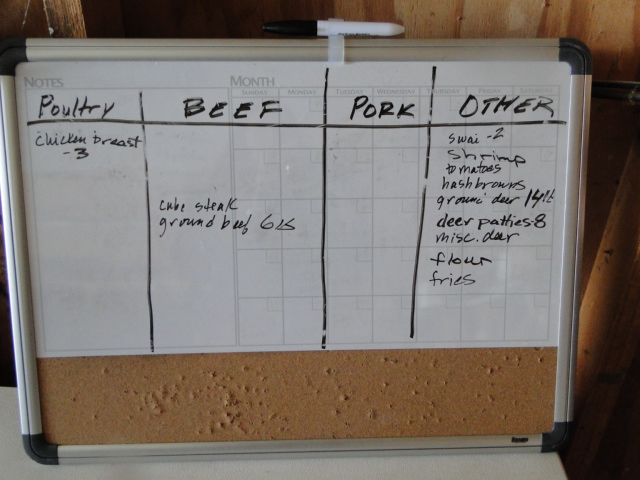 NOTES
MONTH
SUNDAY MONDAY TUESDAY WEDNESDAY THURSDAY FRIDAY SATURDAY
Poultry BEEF PORK OTHER
chicken breast
-3
cube steak
ground beef 6
swai -2
shrimp
tomatoes
hashbrowns
ground deer 14
deer patties 8
misc. deer
flour
fries